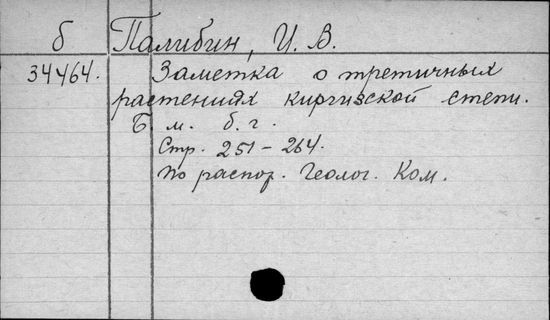 б Палибин, И. В.
34464. Заметка о третичных
растениях киргизской степи.
Б. м. б. г.
Стр. 251-264.
По распор. Геолог. Ком.